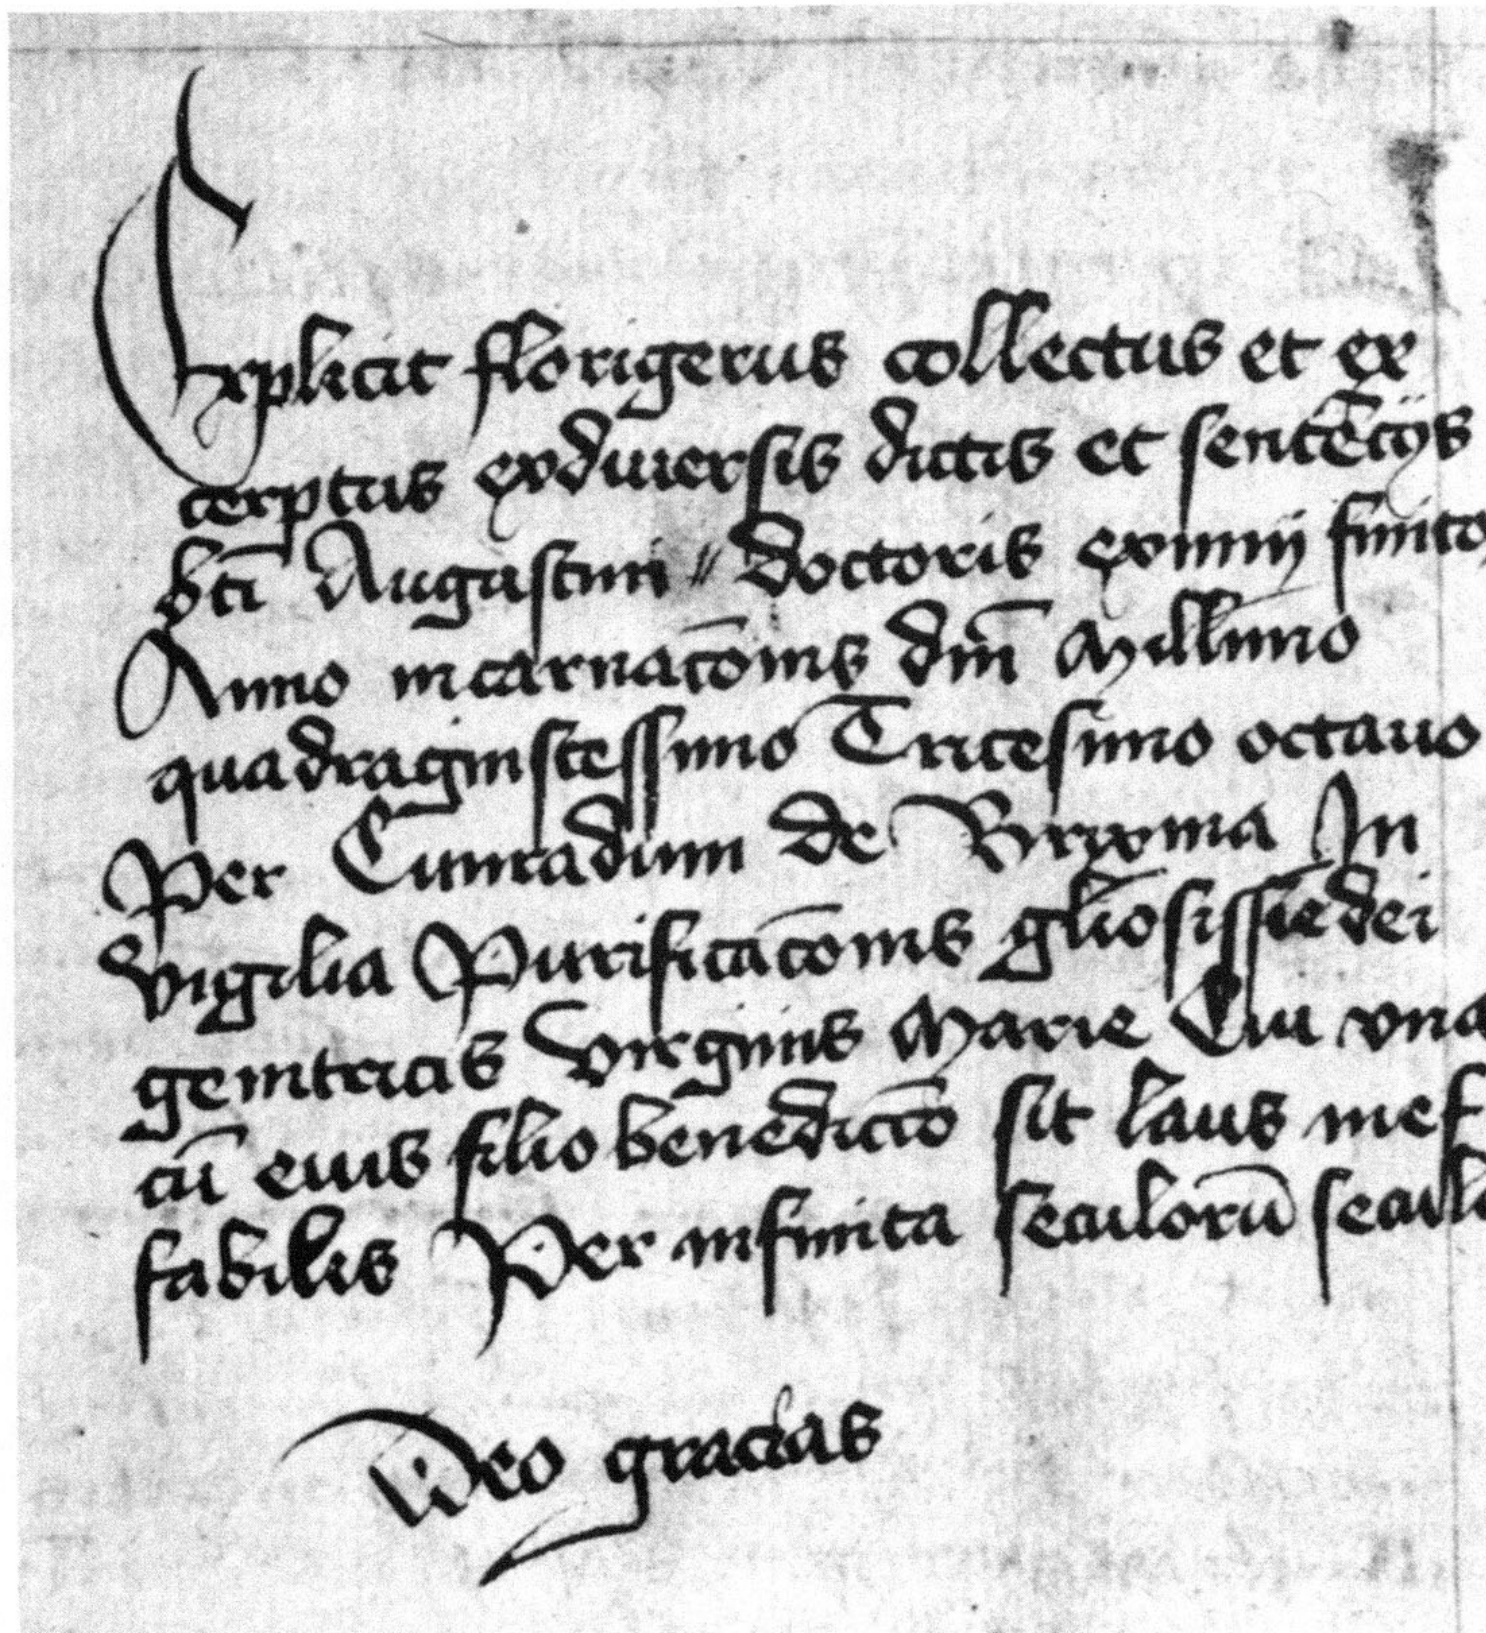 Explicit florigerus collectus et ex
cerptus exdiuersis dictis et sentēcijs
bti̅ Augustini // doctoris eximij finito
Anno incarnaco̅nis dni̅ Mill̅imo
quadraginstessimo Tricesimo octauo
Per Cunradum de Brixina In
vigilia Purificaco̅nis gl̅iosissi̅e dei
genitricis virginis Marie Cui vna
cu̅ eius filio benedicto̅ sit laus inef
fabilis Per infinita seculoru̅ secula
Deo gracias